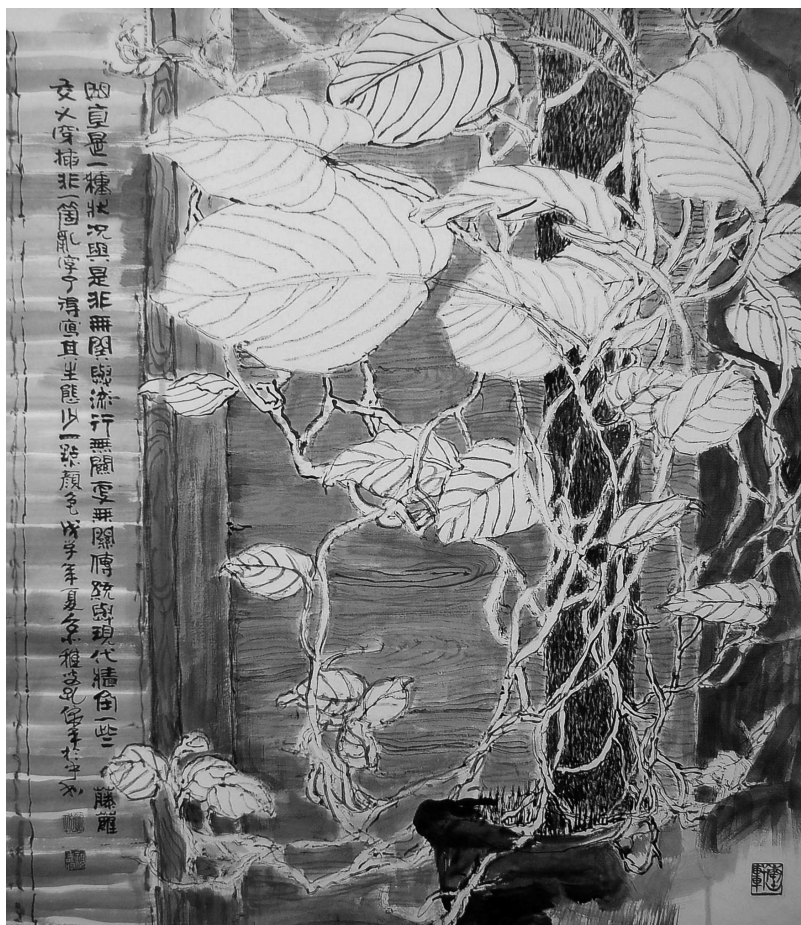 真是一種狀況與是非無關與流行無關更無關傳統與現代牆角一些藤蘿
交叉穿插非一個亂字了得寫其生態少一點顏色戊子年夏